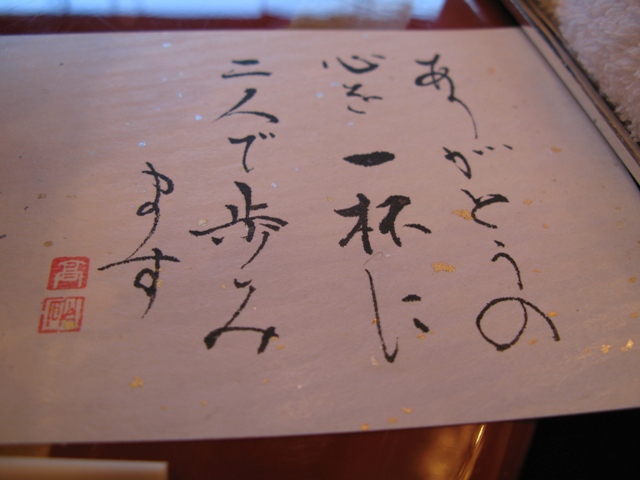 ありがとうの
心を一杯に
二人で歩み
ます